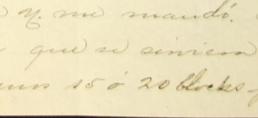 y me mandó.
que se sirviera
unos 15 ó 20 blocks